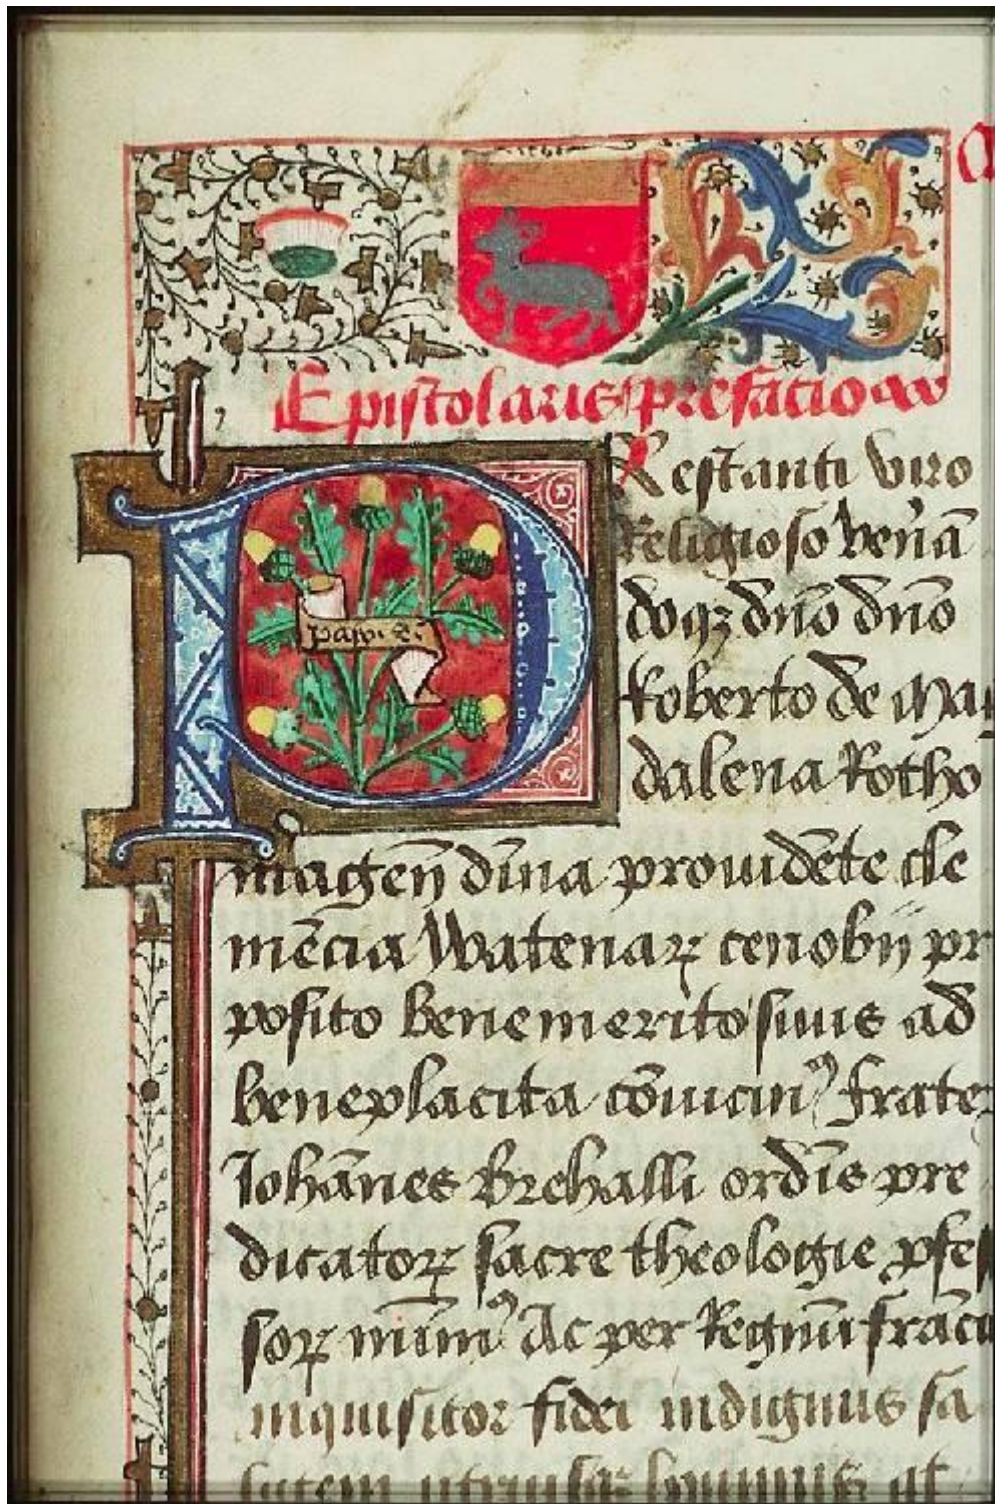 Epistolaris prefacio
Restanti viro
Religioso ven̄a
doqȝ dn̄o dn̄o
Roberto de Mag
dalena Rotho
mageñ diuīa prouidēte cle
mēcia Watenaꝝ cenobij pr
posito benemerito suus ad
beneplacita cōuicinꝰ frater
Iohānes Brehalli ordīs pre
dicatoꝝ sacre theologie ꝓfes
soꝝ minimꝰ Ac per Regnū frācie
inquisitor fidei indignus sa
lutem